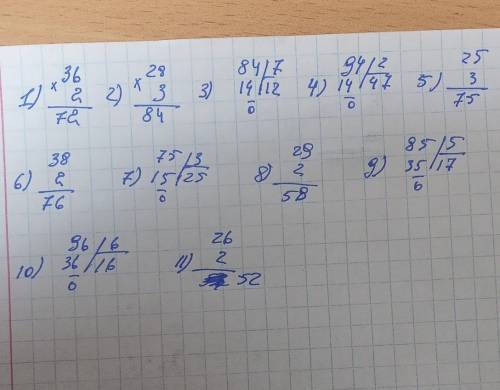 1) × 36 2 72 2) × 28 3 84 3) 84 7 14 12 0 4) 94 2 14 47 0 5) 25 3 75
6) 38 2 76 7) 75 3 15 25 0 8) 29 2 58 9) 85 5 35 17 0
10) 96 6 36 16 0 11) 26 2 52